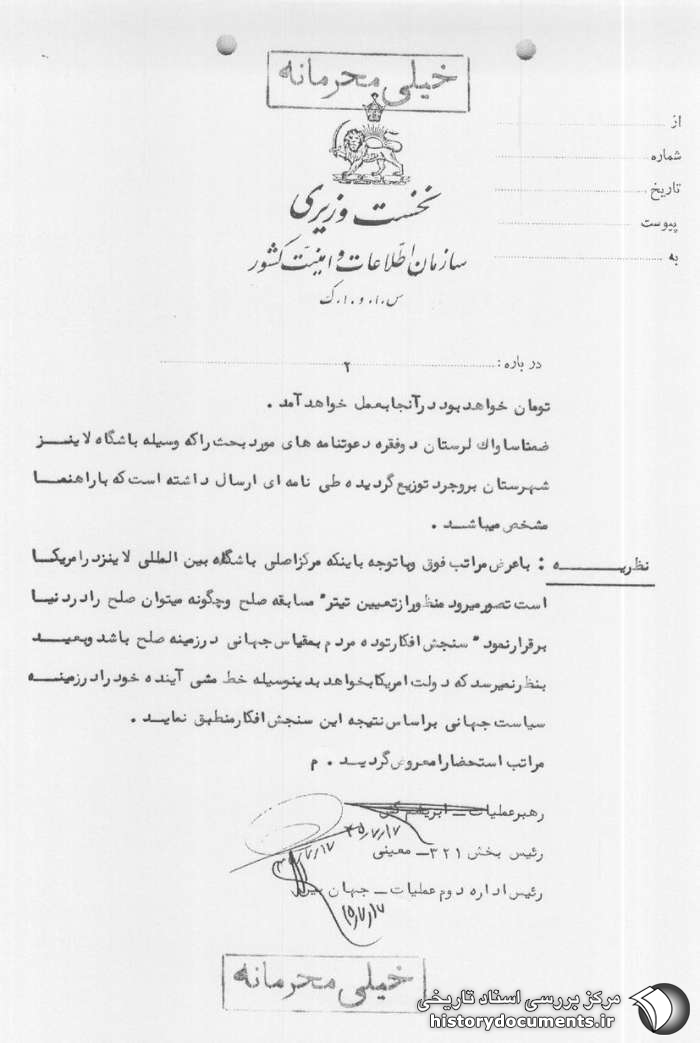 خیلی محرمانه
نخست وزیری
سازمان اطلاعات و امنیت کشور
س.ا.و.ا.ک
از
شماره
تاریخ
پیوست
به
درباره : ۲
تومان خواهد بود در آنجا بعمل خواهد آمد .
ضمنا ساواک لرستان دو فقره دعوتنامه های مورد بحث را که وسیله باشگاه لاینز
شهرستان بروجرد توزیع گردیده طی نامه ای ارسال داشته است که با راهنما
مشخص میباشد .
نظریه : با عرض مراتب فوق و با توجه باینکه مرکز اصلی باشگاه بین المللی لاینز در امریکا
است تصور میرود منظور از تعیین تیتر " مسابقه صلح و چگونه میتوان صلح را در دنیا
برقرار نمود " سنجش افکار توده مردم بمقیاس جهانی در زمینه صلح باشد و بعید
بنظر نمیرسد که دولت امریکا بخواهد بدینوسیله خط مشی آینده خود را در زمینه
سیاست جهانی بر اساس نتیجه این سنجش افکار منطبق نماید .
مراتب استحضارا معروض گردید . م
رهبر عملیات ـ ابریشم کش
۴۵/۷/۱۷
رئیس بخش ۳۲۱ ـ معینی
۴۵/۷/۱۷
رئیس اداره دوم عملیات ـ جهان بین
۴۵/۷/۱۷
خیلی محرمانه
مرکز بررسی اسناد تاریخی
historydocuments.ir